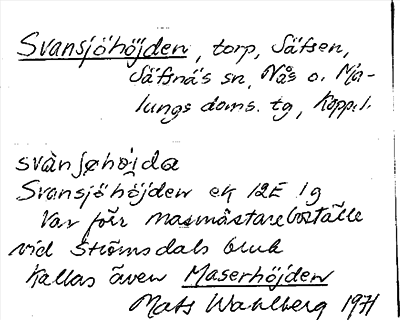 Svansjöhöjden, torp, Säfsen,
Säfsnäs sn, Nås o. Ma-
lungs doms. tg, Koppl.
svànʃøhöjda
Svansjöhöjden ek 12E 1g
Var förr masmästareboställe
vid Strömsdals bruk
Kallas även Maserhöjden
Mats Wahlberg 1971